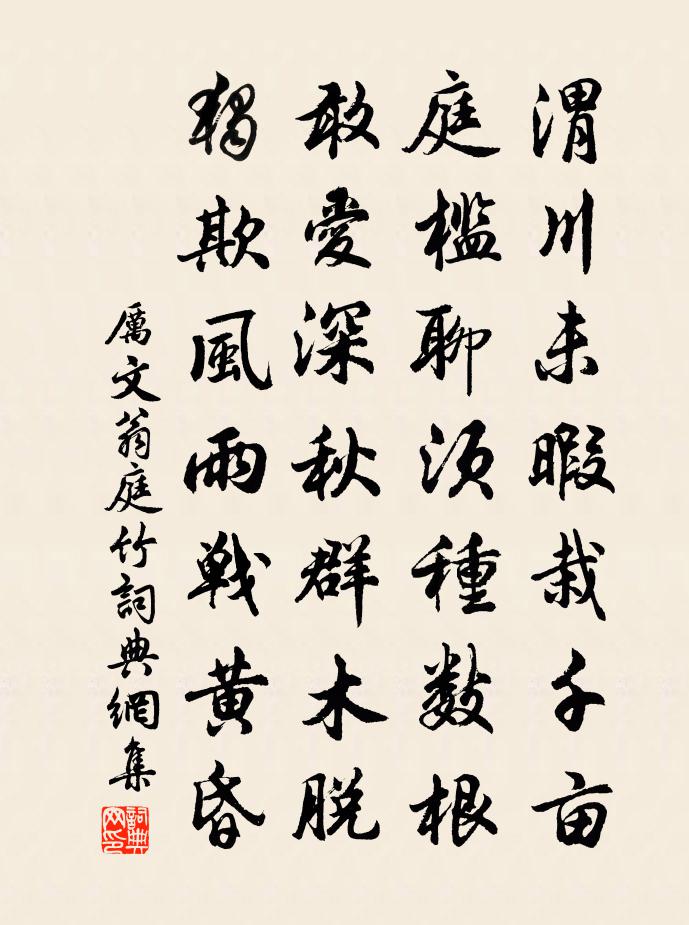 渭川未暇栽千亩
庭檻聊須種數根
敢愛深秋群木脱
獨欺風雨戰黄昏
厲文翁庭竹詞典網集
詞典網印